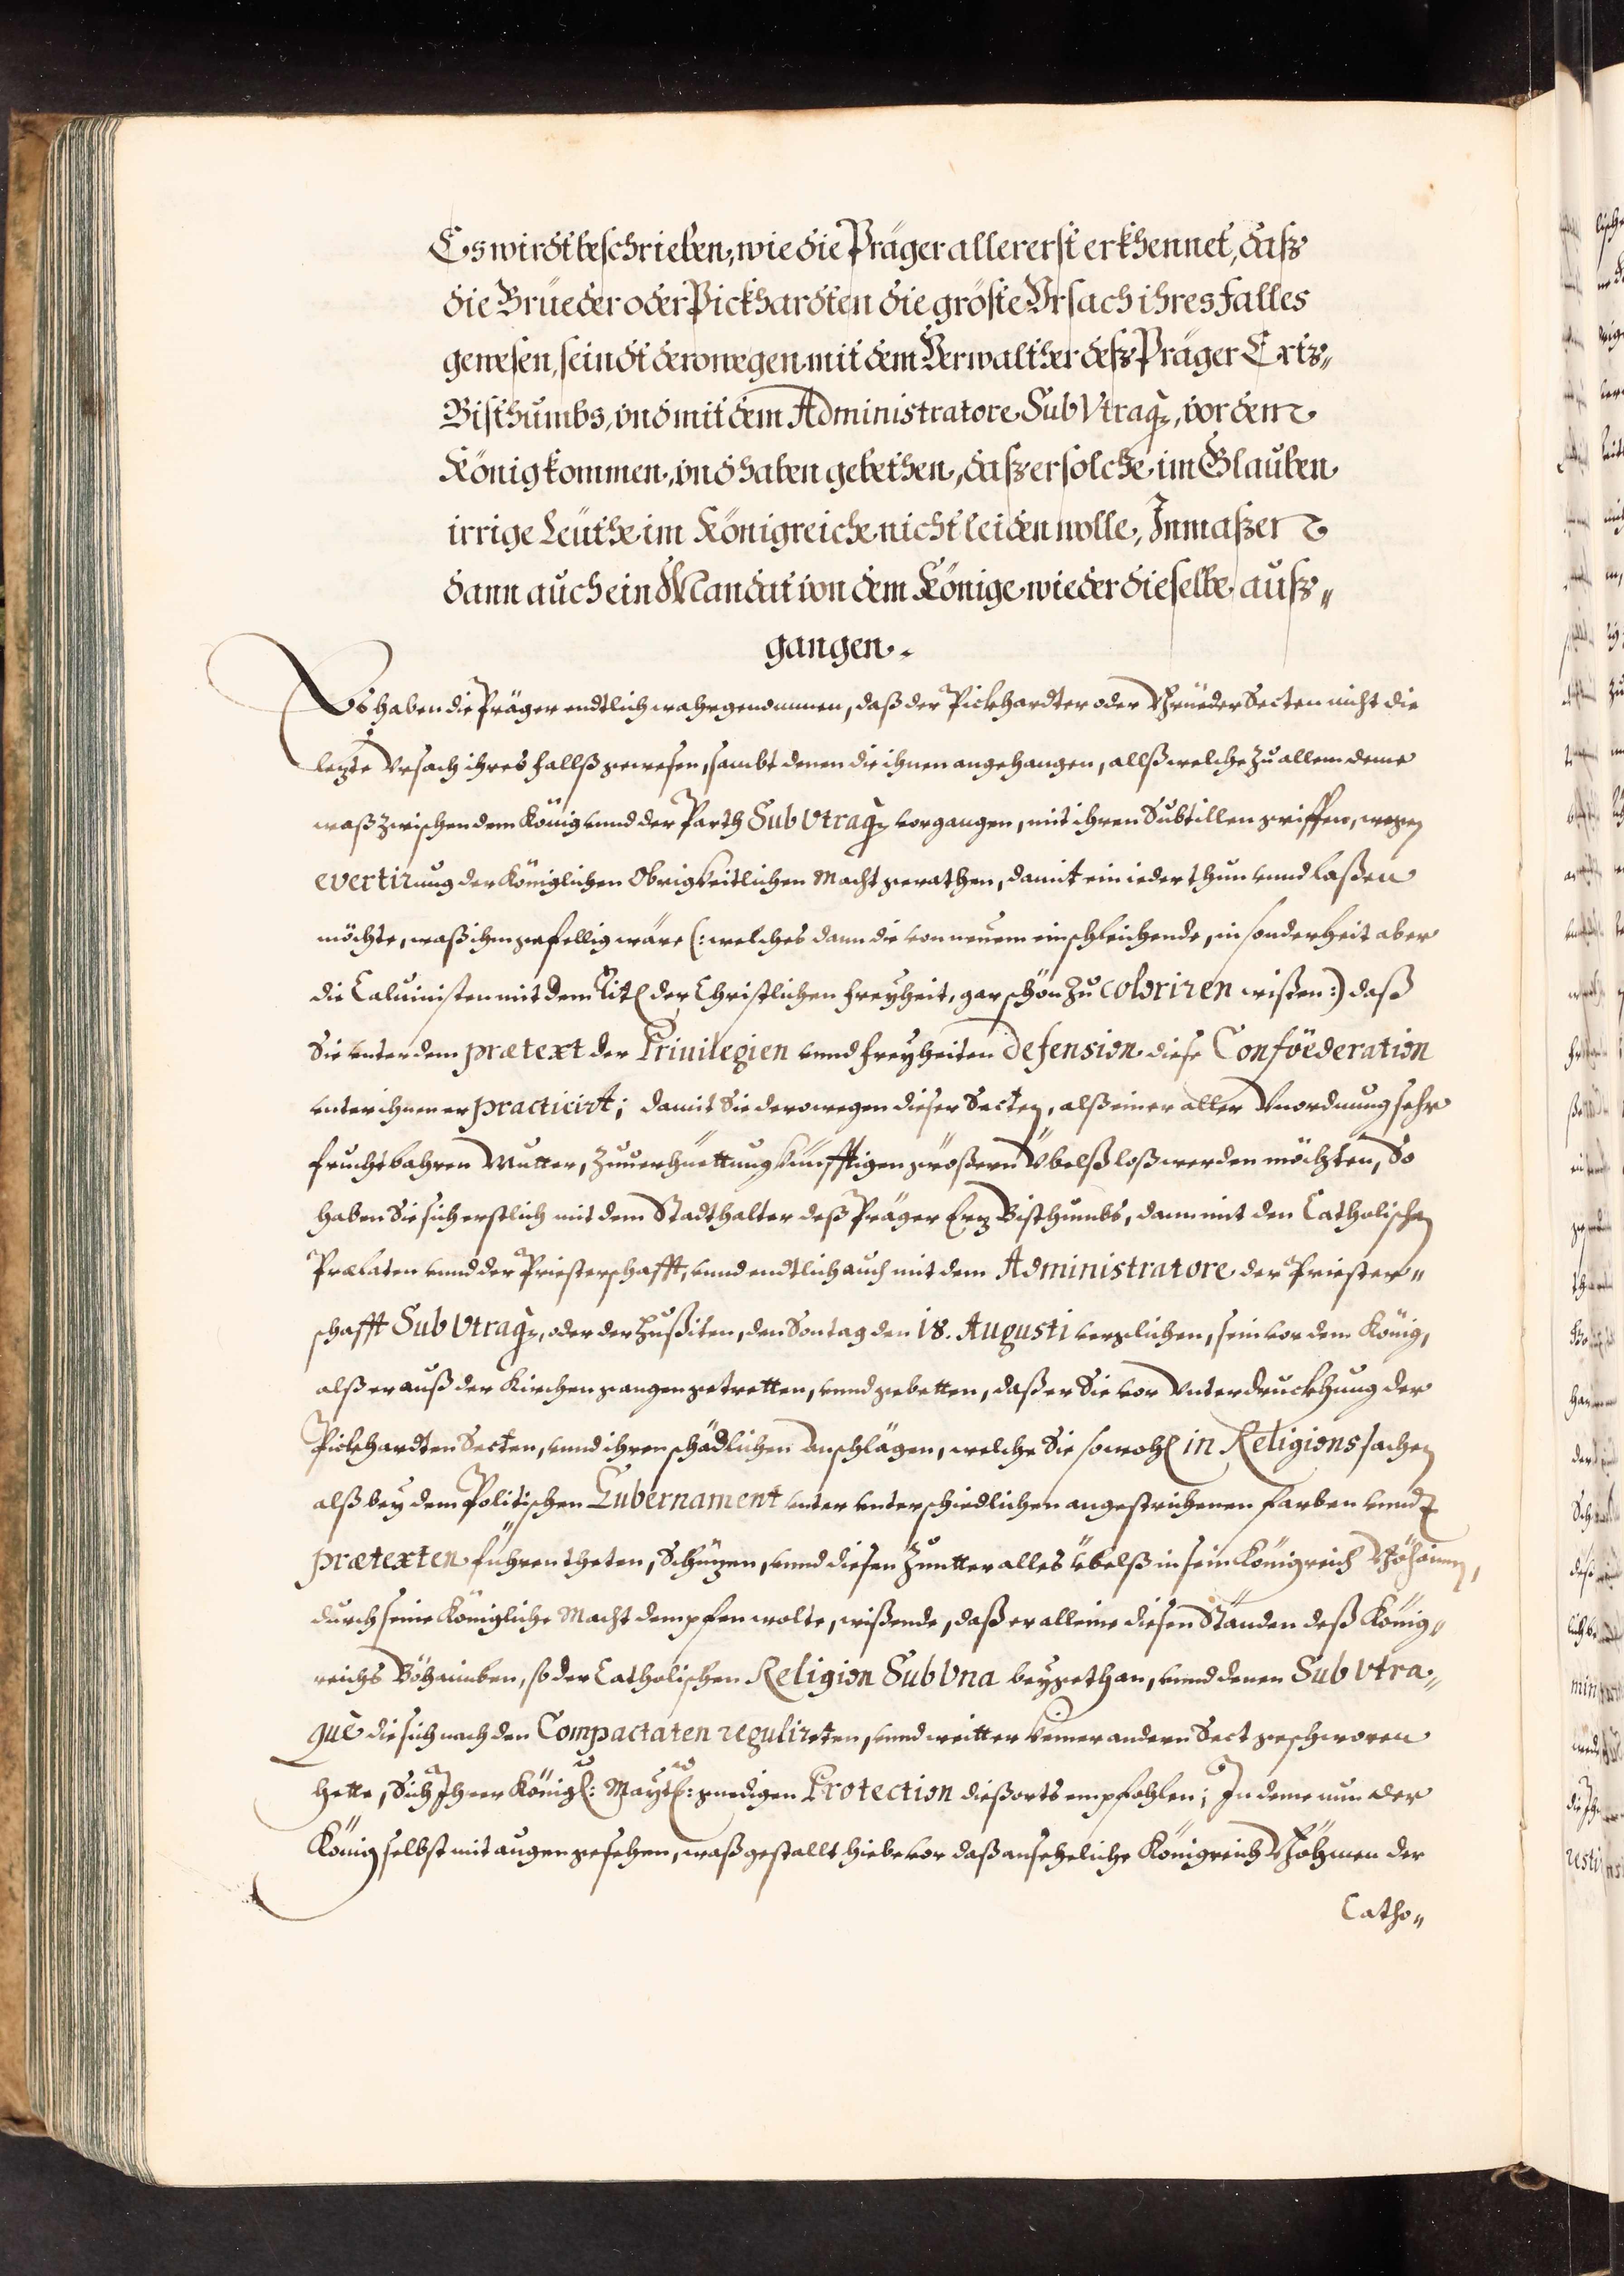 Es wirdt beschrieben, wie die Präger allererst erkhennet, daß
die Brüeder oder Pickhardten die gröste Vrsach ihres falles
gewesen, seindt derowegen mit dem Verwalther deß Präger Ertz„
Bisthumbs, vnd mit dem Administratore Sub Vtraq3, vor dem
König kommen, vnd haben gebethen, daß er solche im Glauben
irrige Leüthe im Königreiche nicht leiden wolle, Inmaßer
dann auch ein Mandat von dem Könige wieder dieselbe auß„
gangen.
Es haben die Präger endtlich wahrgenommen, daß der Pickhardter oder Brüeder Secten nicht die
letzte Vrsach ihres fallß gewesen, sambt denen die ihnen angehangen, allß welche zu allem deme
waß zwischen dem König vnnd der Parth Sub Vtraq3 vorgangen, mit ihren Subtillen griffen, wegen
evertirung der Königlichen Obrigkeitlichen Macht gerathen, damit ein ieder thun vnnd laßen
möchte, waß ihm gefellig wäre (: welches dann die von neuem einschleichende, in sonderheit aber
die Caluinisten mit dem Titl der Christlichen freyheit, gar schön zu coloriren wißen :) daß
Sie vnter dem prætext der Priuilegien vnnd freyheiten defension diese Conföederation
vnter ihnen er practicirt; damit Sie derowegen dieser Secten, alß einer aller Vnordnung sehr
fruchtbahren Mutter, zuuerhüettung künfftigen größern Übelß loß werden möchten, So
haben Sie sich erstlich mit dem Stadthalter deß Präger Ertz Bisthumbs, dann mit den Catholischen
Prælaten vnnd der Priesterschafft, vnnd endtlich auch mit dem Administratore der Priester„
schafft Sub Vtraq3, oder der Hußiten, den Sontag den 18. Augusti verglichen, sein vor dem König,
alß er auß der Kirchen gangen getretten, vnnd gebetten, daß er Sie vor Vnterdruckhung der
Pickhardten Secten, vnnd ihren schädlichen Anschlägen, welche Sie sowohl in Religions sachen
alß bey dem Politischen Gubernament vnter vnterschiedlichen angestrichenen farben vnnd
prætexten führen theten, Schützen, vnnd diesen Zuntter alles übelß in sein Königreich Böhaimen,
durch seine Königliche Macht dempfen wolte, wißende, daß er alleine diesen Ständen deß König„
reichs Böhaimben, so der Catholischen Religion Sub Vna beygethan, vnnd denen Sub Vtra„
què die sich nach den Compactaten regulireten, vnnd weitter keiner andern Sect geschworen
hette, Sich Ihrer Königl: Maytt: gnedigen Protection dießorts empfohlen; In deme nun der
König selbst mit augen gesehen, waß gestallt hiebevor daß ansehenliche Königreich Böhmen der
Catho„